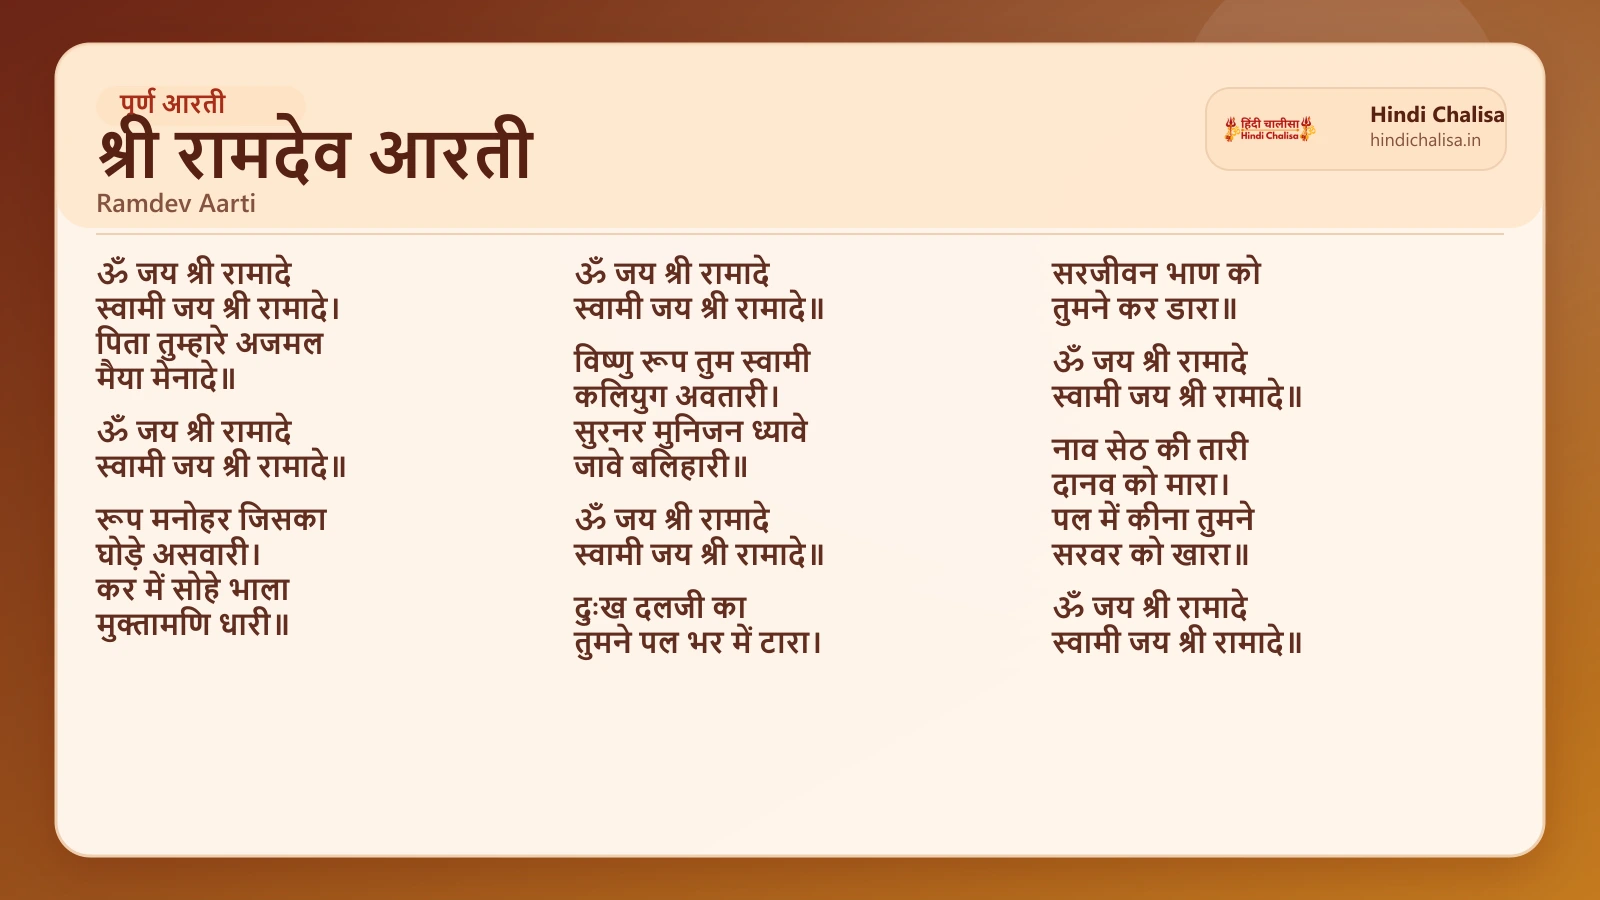 पूर्ण आरती
श्री रामदेव आरती
Ramdev Aarti
हिंदी चालीसा
Hindi Chalisa
Hindi Chalisa
hindichalisa.in
ॐ जय श्री रामादे
स्वामी जय श्री रामादे।
पिता तुम्हारे अजमल
मैया मेनादे॥
ॐ जय श्री रामादे
स्वामी जय श्री रामादे॥
रूप मनोहर जिसका
घोड़े असवारी।
कर में सोहे भाला
मुक्तामणि धारी॥
ॐ जय श्री रामादे
स्वामी जय श्री रामादे॥
विष्णु रूप तुम स्वामी
कलियुग अवतारी।
सुरनर मुनिजन ध्यावे
जावे बलिहारी॥
ॐ जय श्री रामादे
स्वामी जय श्री रामादे॥
दुःख दलजी का
तुमने पल भर में टारा।
सरजीवन भाण को
तुमने कर डारा॥
ॐ जय श्री रामादे
स्वामी जय श्री रामादे॥
नाव सेठ की तारी
दानव को मारा।
पल में कीना तुमने
सरवर को खारा॥
ॐ जय श्री रामादे
स्वामी जय श्री रामादे॥